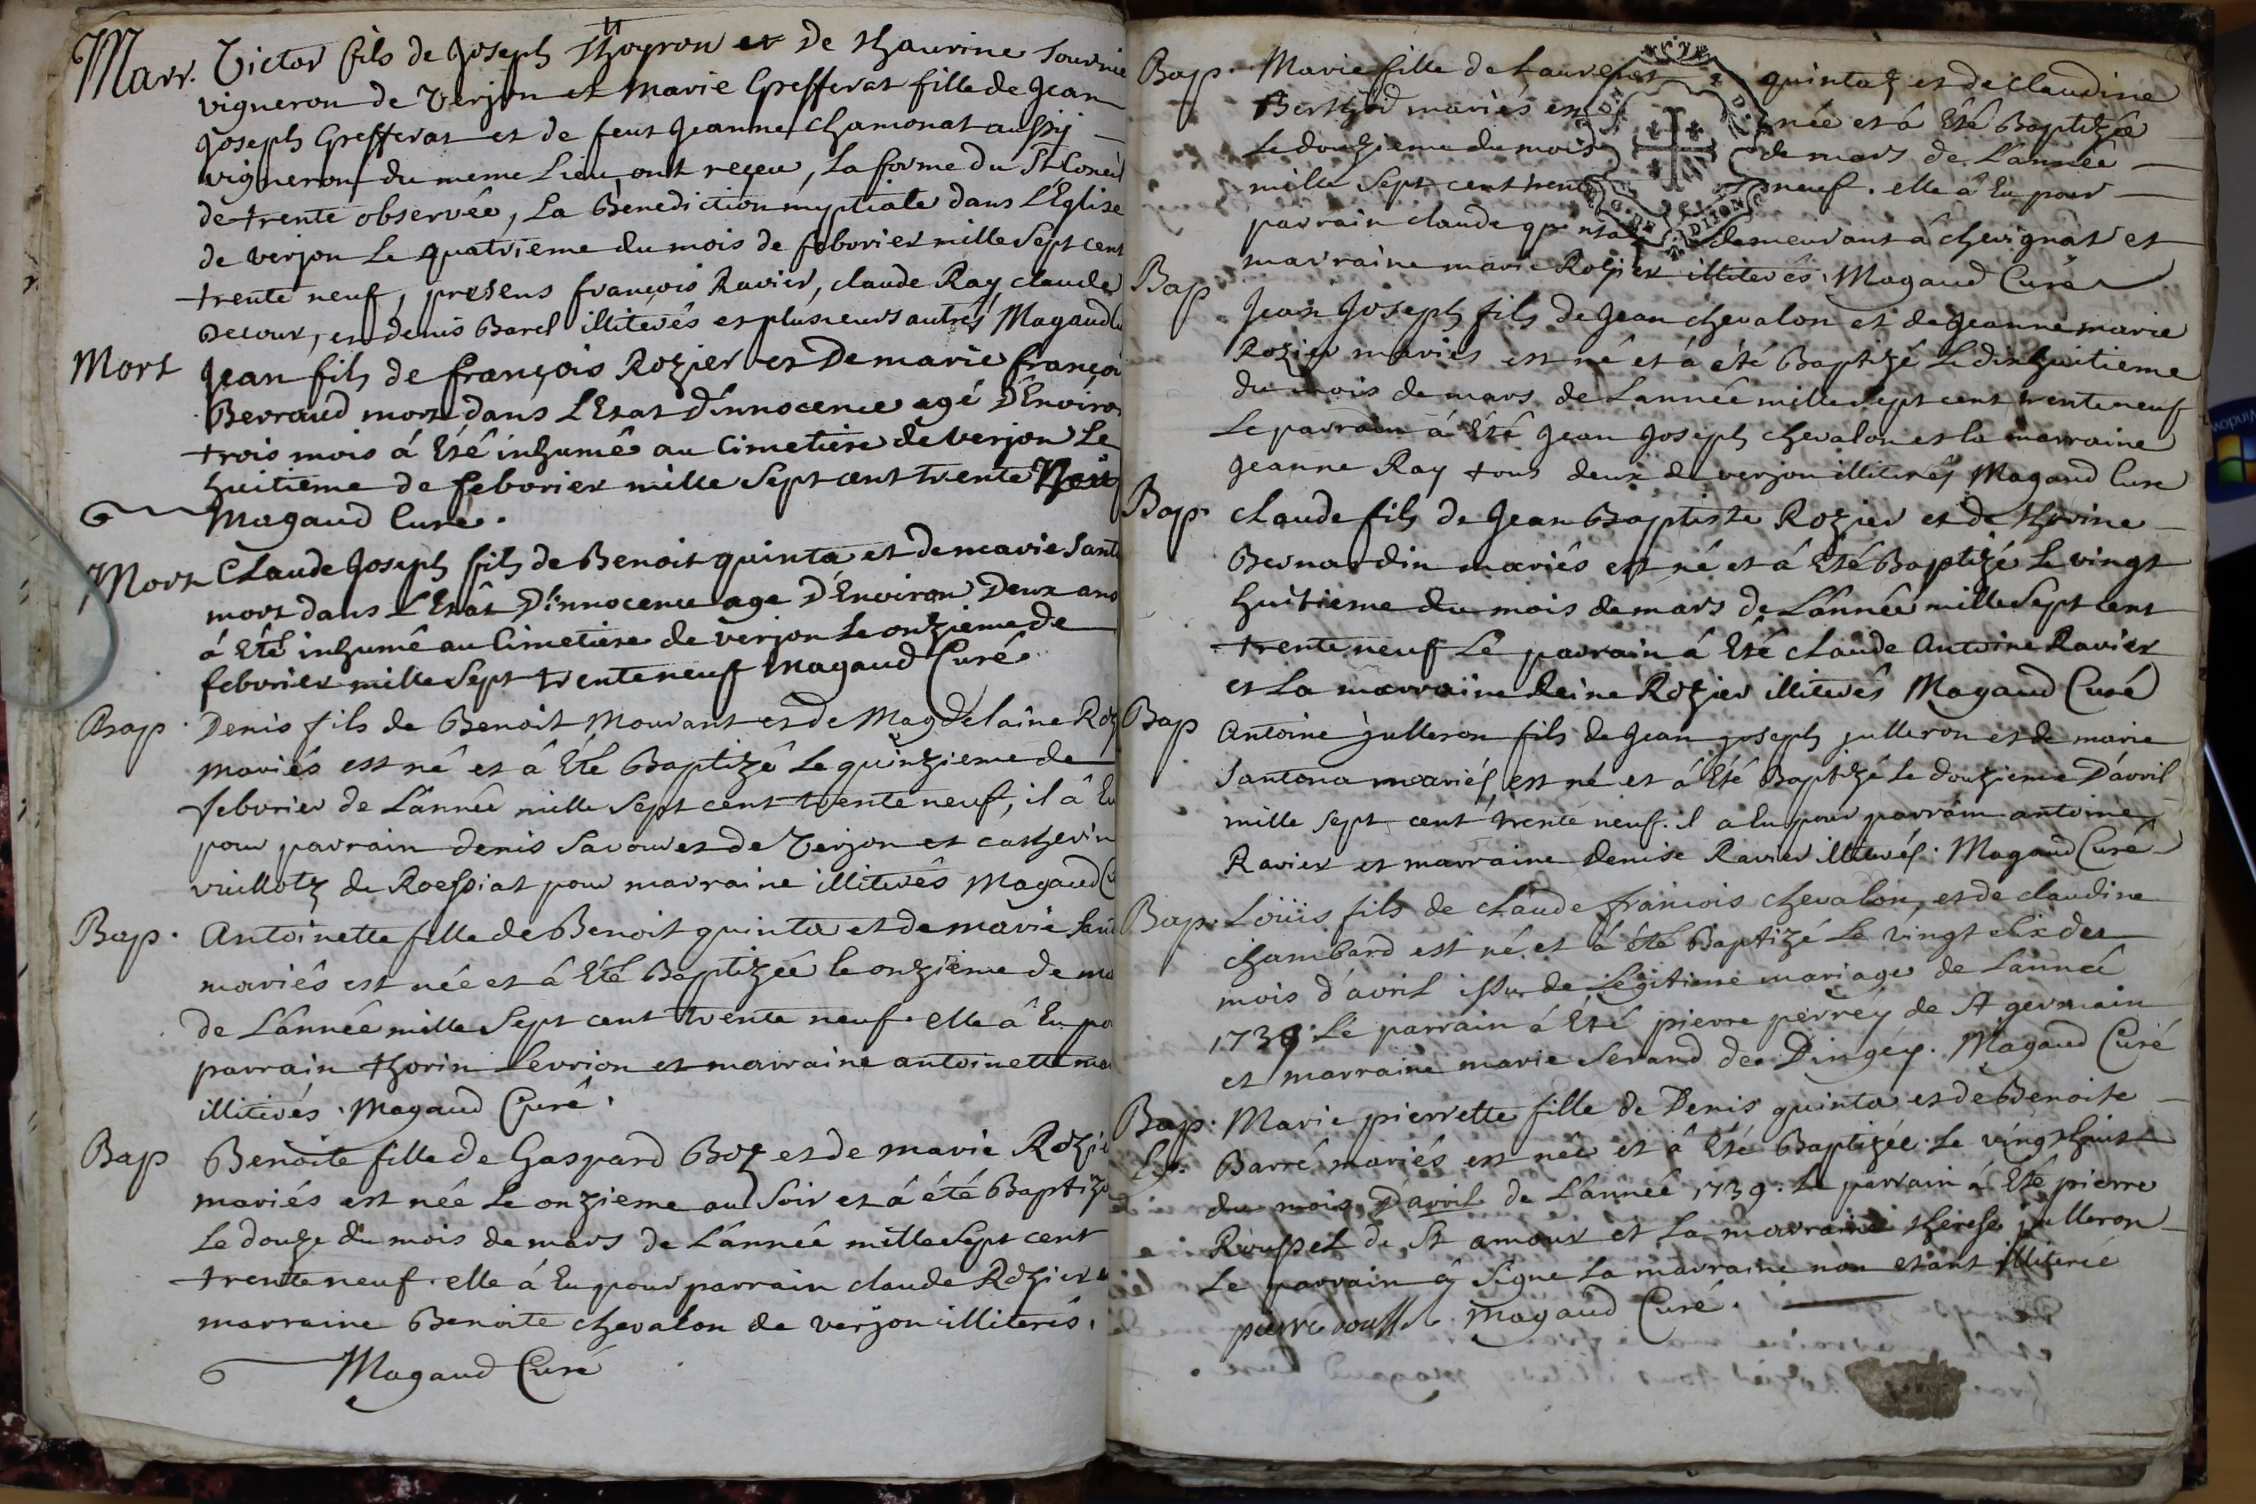 Marr. Victor fils de Joseph Thoyron et de thaurine
vigneron de verjon et marie Grefferat fille de Jean
Joseph Grefferat et de feut Jeanne Chamonat aussy
vigneron du meme Lieu, ont reçeu, La forme du St Concil
de trente observée, La Benediction nuptiale dans L'Eglise
de verjon Le quatrieme du mois de febvrier mille Sept cent
trente neuf, presens françois Ravier, claude Ray, claude
Decour, et denis Barel illiterés et plusieurs autres Magaud
Mort Jean fils de françois Rozier et De marie françoi
Berraud mort dans L'Etat D'innocence agé D'Environ
trois mois á Eté inhumé au Cimetiere de verjon Le
huitieme de febvrier mille Sept cent trente Neuf
Magaud Curé.
Mort Claude Joseph fils de Benoit quinta et de marie Sant
mort dans L'Etât D'innocence age D'Environ Deux ans
á Eté inhumé au Cimetiere de verjon Le onzieme de
febvrier mille Sept trente neuf Magaud Curé
Bap. Denis fils de Benoit Mourant et de Magdelaine Roz
mariés est né et â Eté Baptizé Le quinzieme de
febvrier de L'année mille Sept cent trente neuf, il â Eu
pour parrain denis Savouret de Verjon et catherin
vuillotz de Roessiat pour marraine illiterés Magaud
Bap. Antoinette fille de Benoit quinta et de marie San
mariés est née et â Eté Baptizée le onzieme de ma
de L'année mille Sept cent trente neuf. elle â Eu po
parrain thorin Levrion et marraine antoinette ma
illiterés. Magaud Curé.
Bap Benoite fille de Gaspard Boz et de marie Rozie
mariés est née Le onzieme au Soir et á été Baptizé
Le douze du mois de mars de L'année mille Sept cent
trente neuf. elle á Eu pour parrain claude Rozier
marraine Benoite chevalon de verjon illiterés.
Magaud Curé
Bap. Marie fille de Laurent quintaz et de claudine
Berthod mariés est née et â Eté Baptizée
Le douzieme du mois de mars de L'année
mille Sept cent trente neuf. elle â Eu pour
parrain claude quinta demeurant â chevignat et
marraine marie Rozier illiterés. Magaud Curé
Bap Jean Joseph fils de Jean chevalon et de Jeanne marie
Rozier mariés est né et á été Baptizé Le dix huitieme
du mois de mars de L'année mille Sept cent trente neuf
Le parrain á Eté Jean Joseph chevalon et la marraine
Jeanne Ray tous deux de verjon illiterés Magaud Cure
Bap. claude fils de Jean Baptiste Rozier et de thorine
Bernardin mariés est né et á Eté Baptizé Le vingt
huitieme du mois de mars de L'année mille Sept cent
trente neuf Le parrain á Eté claude Antoine Ravier
et La marraine Reine Rozier illiterés Magaud Curé
Bap Antoine julleron fils de Jean joseph julleron et de marie
Santona mariés est né et á Eté Baptizé Le douzieme D'avril
mille Sept cent trente neuf. il a Eu pour parrain antoine
Ravier et marraine denise Ravier illiterés. Magaud Curé
Bap. Loüis fils de claude françois chevalon, et de claudine
chambard est né et á été Baptizé Le vingt dix des
mois d'avril issu de Légitime mariage de L'année
1739. Le parrain á Eté pierre perréy de St germain
et marraine marie Serand de Dingéy. Magaud Curé
Bap. Marie pierrette fille de Denis quinta et de Benoite
Barré mariés est née et â Eté Baptizée Le vingt huit
du mois D'avril de L'année 1739. Le parrain á Eté pierre
Rousset de St amour et La marraine therese julleron
Le parrain â Signe La marraine non etant illiterée
pierre rousset Magaud Curé.